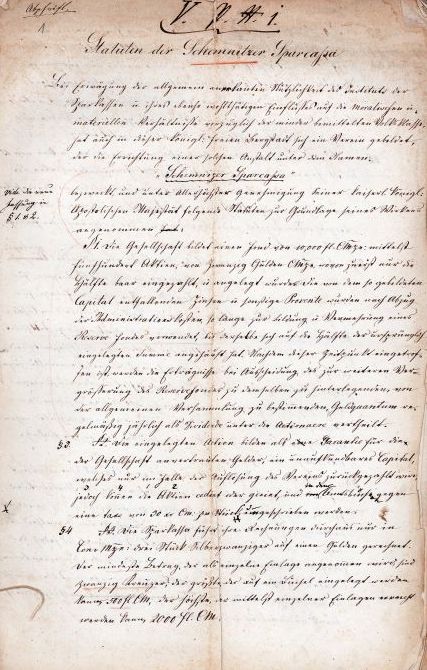 Abschrift.
V. P. H. 1.
1
Statuten der Schemnitzer Sparcassa
Bei Erwägung der allgemein anerkannten Nützlichkeit des Instituts der
Sparkassen u ihres ebenso wohlthätigen Einflusses auf die moralischen u.
materiellen Verhältnisse vorzüglich der minder bemittelten Volksklasse,
hat auch in dieser königl. freien Bergstadt sich ein Verein gebildet,
der die Errichtung einer solchen Anstalt unter dem Namen:
"Schemnizer Sparcassa"
bezweckt und unter Allerhöchster Genehmigung Seiner kaiserl. königl.
Apostolischen Majestät folgende Statuten zur Grundlage seines Wirkens
angenommen
§ 1. u 2.
§ 1. Die Gesellschaft bildet einen Fond von 10,000 fl. CMze: mittelst
fünfhundert Aktien, von zwanzig Gulden CMze, wovon zuerst nur die
Hälfte baar eingezahlt, u angelegt wurde. Die von dem so gebildeten
Capital entfallenden Zinsen u sonstige Procente wurden nach Abzug
der Administrationskosten so lange zur Bildung u Vermehrung eines
Reserve Fondes verwendet, bis derselbe sich auf die Hälfte der ursprünglich
eingelegten Summe angehäuft hat. Nachdem dieser Zeitpunkt eingetrof-
fen ist, werden die Erträgnisse bei Ausscheidung, des zur weiteren Ver-
größerung des Reservefondes, zu demselben zu hinterlegenden, von
der allgemeinen Versammlung zu bestimmenden Geldquantum re-
gelmäßig jährlich als Dividende unter die Actionaere vertheilt.
§3 Die eingelegten Actien bilden als eine Garantie für die
der Gesellschaft anvertrauten Gelder, ein unaufkündbares Capital,
welches nur im Falle der Auflösung des Vereins zurückgezahlt wird,
jedoch können die Aktien cedirt oder girirt, und in dem gegen
eine taxe von 30 xr CM. pr Stück umgeschrieben werden.
§4 Die Sparkassa führt ihre Rechnungen durchaus nur in
Conv Mze: drei Stück Silberzwanziger auf einen Gulden gerechnet.
Der mindeste Betrag, der als einzelne Einlage angenommen wird sind
zwanzig Kreuzer, der größte der auf ein Einlage eingelegt werden
kann 500 fl CM, der höchste, der mittelst einzelner Einlagen erreicht
werden kann 2000 fl. CM.